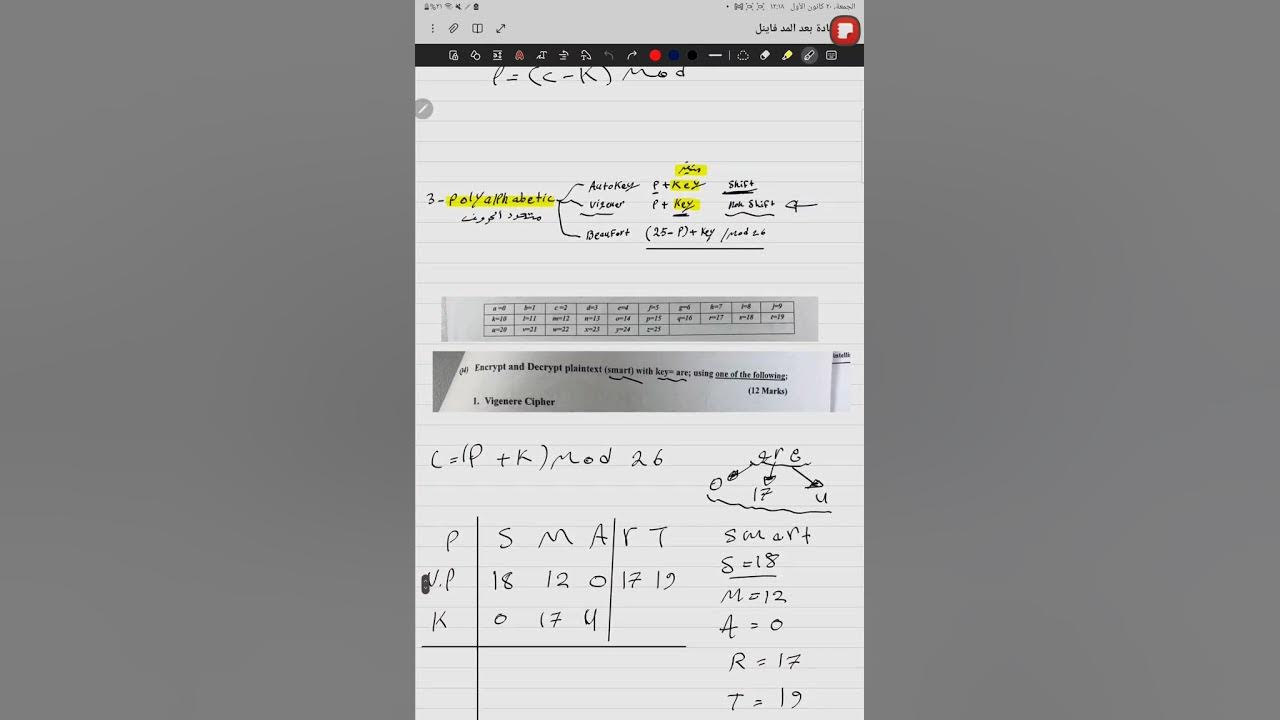 الجمعة، ٢٠ كانون الأول ١٢:١٨
٢١%
ادة بعد المد فاينل
P=(C-K) Mod
متغير
3- Polyalphabetic
متعدد الحروف
AutoKey P+Key Shift
Vigener P+Key Non Shift
Beaufort (25-P)+Key /Mod 26
a=0 b=1 c=2 d=3 e=4 f=5 g=6 h=7 i=8 j=9
k=10 l=11 m=12 n=13 o=14 p=15 q=16 r=17 s=18 t=19
u=20 v=21 w=22 x=23 y=24 z=25
intelli
Encrypt and Decrypt plaintext (smart) with key= are; using one of the following;
(12 Marks)
1. Vigenere Cipher
C=(P+K) Mod 26
are
0 17 4
P S M A r T
V.P 18 12 0 17 19
K 0 17 4
smart
S=18
M=12
A=0
R=17
T=19